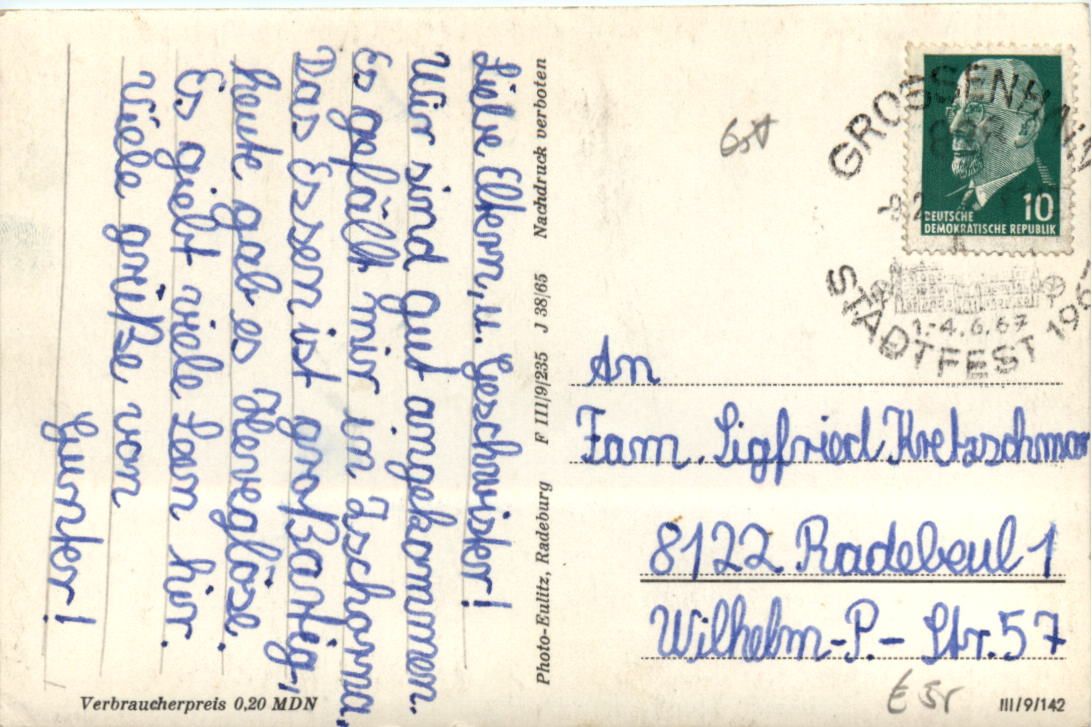 Liebe Eltern, u. Geschwister!
Wir sind gut angekommen.
Es gefällt mir in Zschorna,
Das Essen ist großartig,
heute gab es Herveglöse.
Es giebt viele hir.
Viele grüße von
Gunter!
Verbraucherpreis 0,20 MDN
Photo-Eulitz, Radeburg F III/9/235 J 38/65 Nachdruck verboten
GROSSENHAIN
DEUTSCHE
DEMOKRATISCHE REPUBLIK
10
1.-4.6.67
STADTFEST
An
Fam. Sigfried Kretzschmar
8122 Radebeul 1
Wilhelm-P.-Str. 57
III/9/142